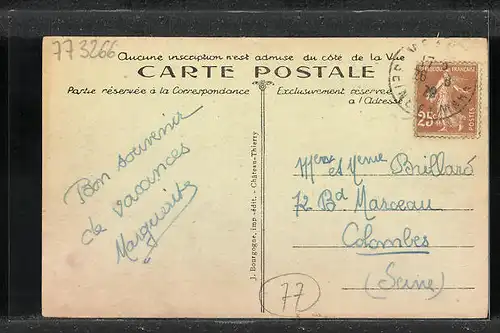 773266
Aucune inscription n'est admise du côté de la Vue
CARTE POSTALE
Partie réservée à la Correspondance
Exclusivement réservé
à l'Adresse
FRANÇAISE
25c
POSTES
Bon souvenir
de vacances
Marguerite
J. Bourgogne, imp.-édit. - Château-Thierry
et Brillard
72 Bd Marceau
Colombes
(Seine)
77